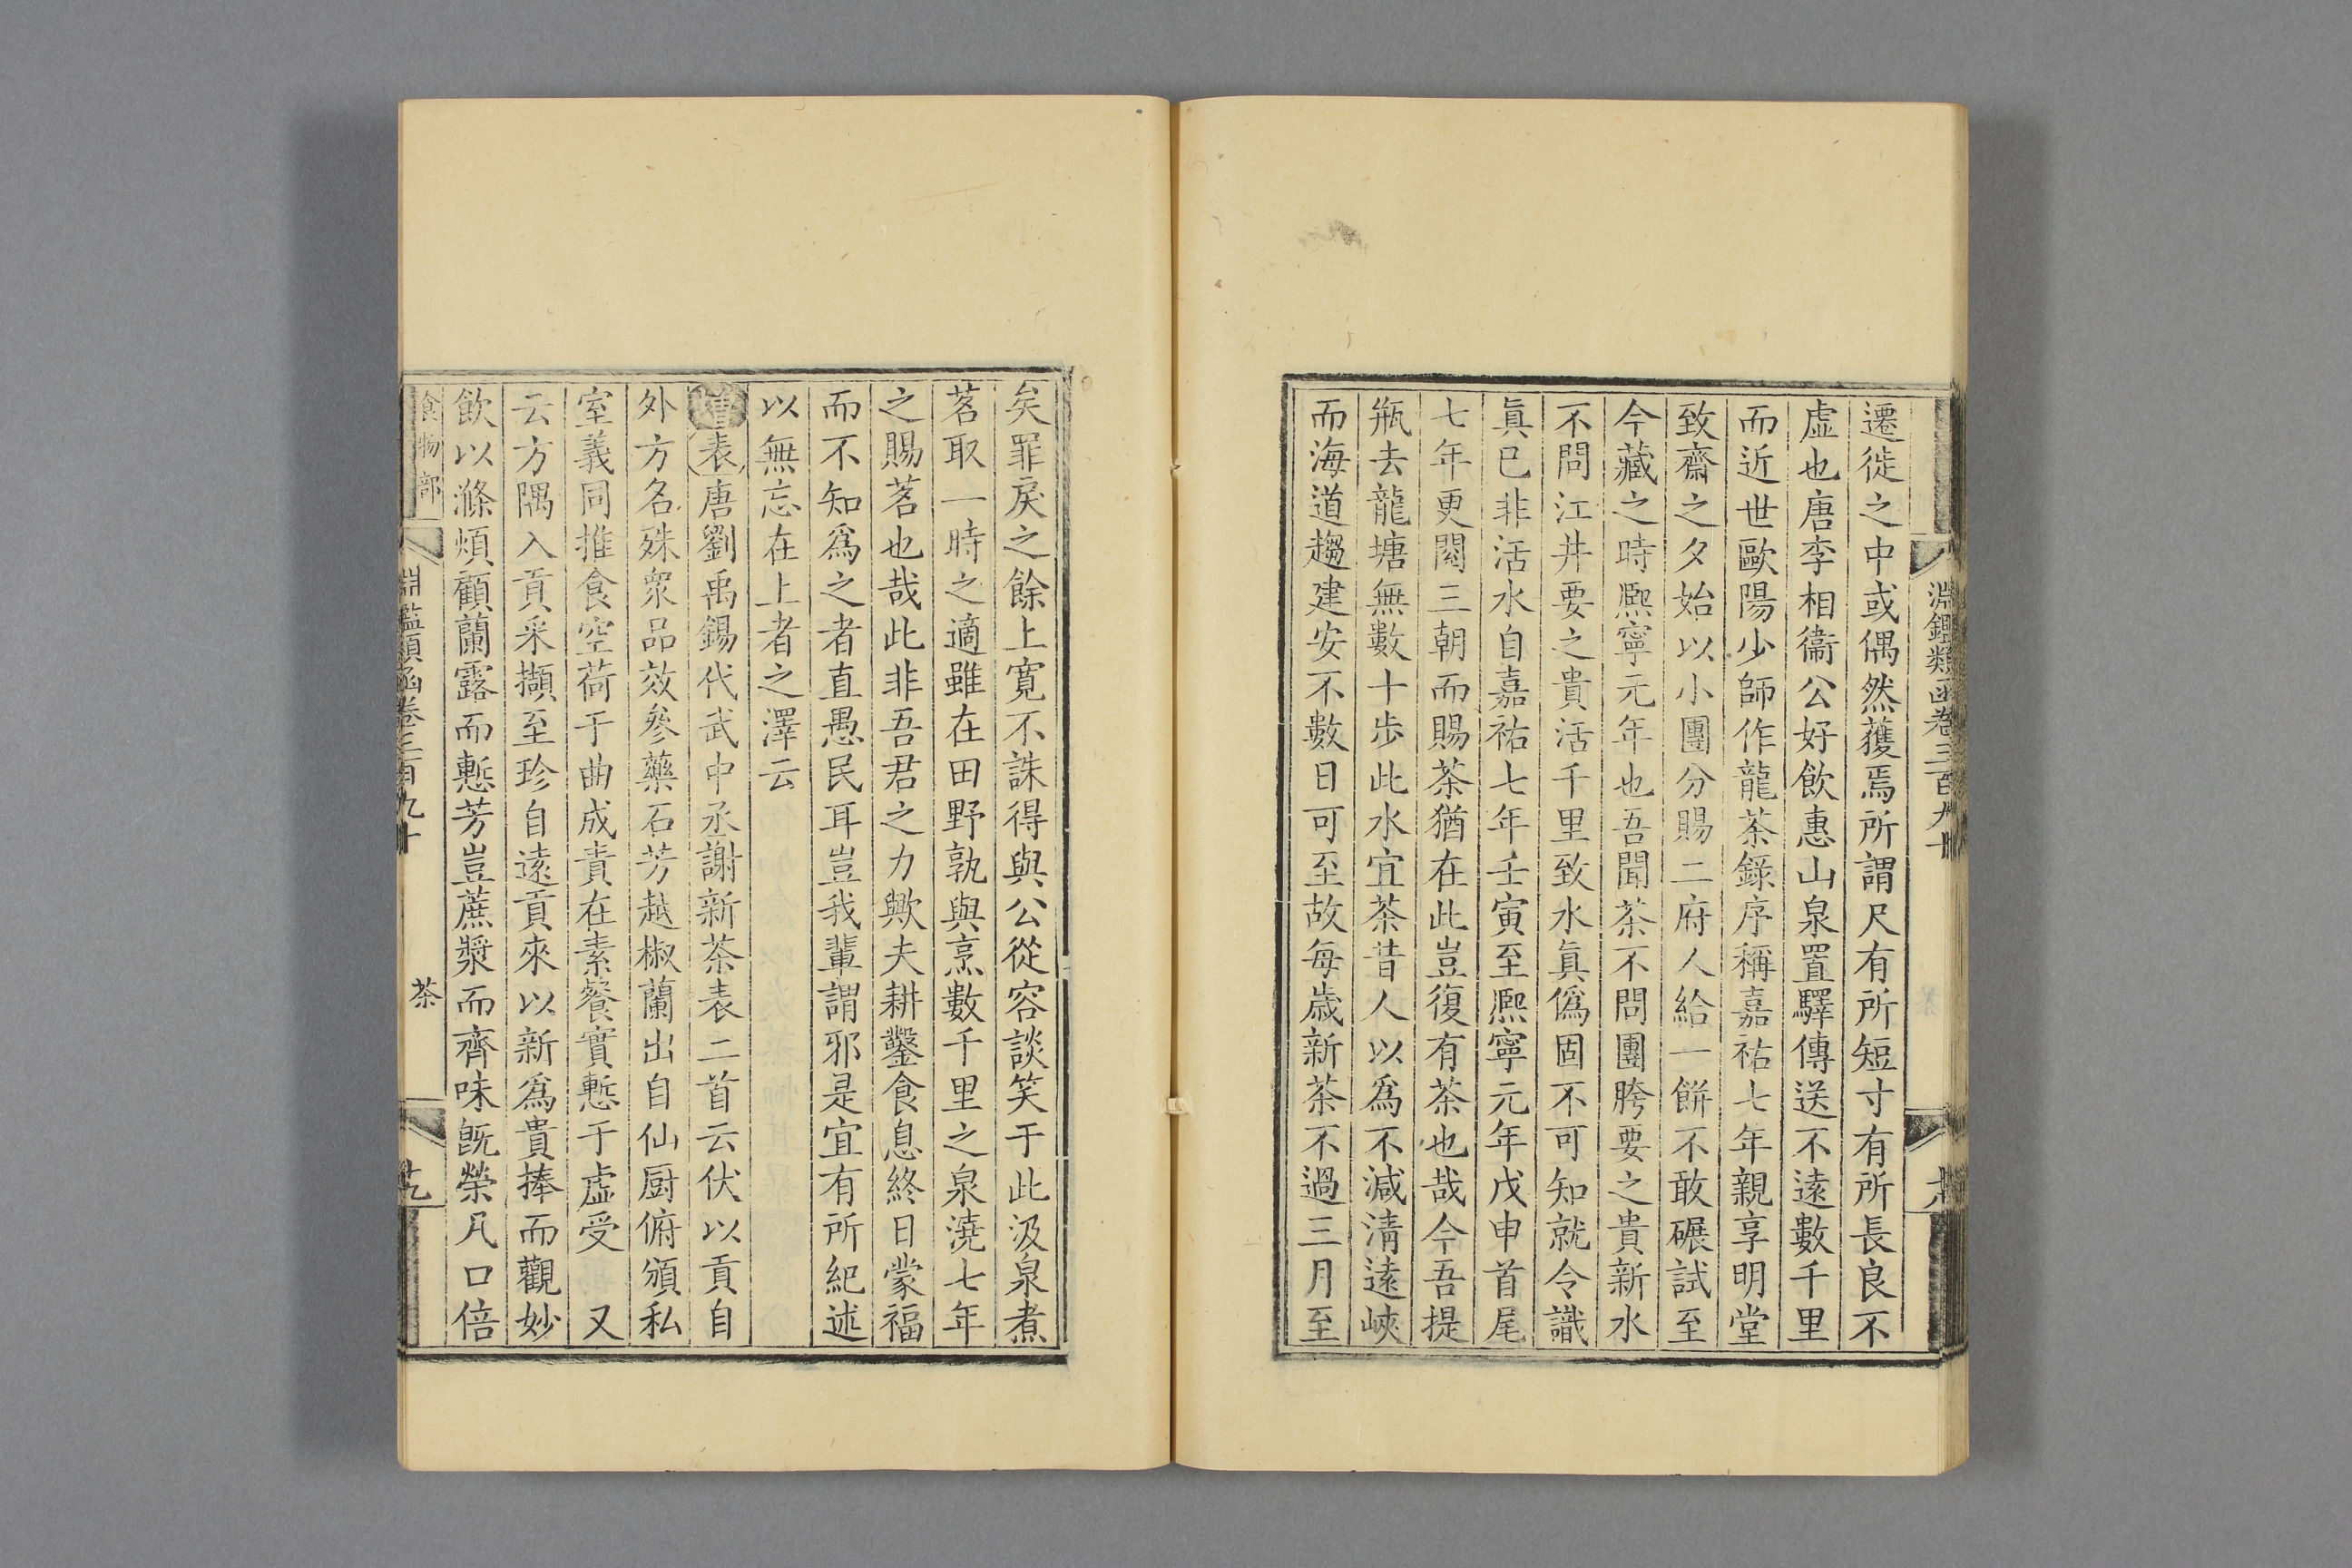 淵鑑類函卷三百九十
遷徙之中或偶然獲焉所謂尺有所短寸有所長良不
虛也唐李相衞公好飲惠山泉置驛傳送不遠數千里
而近世歐陽少師作龍茶錄序稱嘉祐七年親享明堂
致齋之夕始以小團分賜二府人給一餅不敢碾試至
今藏之時熈寧元年也吾聞茶不問團胯要之貴新水
不問江井要之貴活千里致水眞僞固不可知就令識
眞已非活水自嘉祐七年壬寅至熈寧元年戊申首尾
七年更閱三朝而賜茶猶在此豈復有茶也哉今吾提
瓶去龍塘無數十步此水宜茶昔人以爲不減淸遠峽
而海道趨建安不數日可至故每歲新茶不過三月至
矣罪戾之餘上寛不誅得與公從容談笑于此汲泉煮
茗取一時之適雖在田野孰與烹數千里之泉澆七年
之賜茗也哉此非吾君之力歟夫耕鑿食息終日蒙福
而不知爲之者直愚民耳豈我輩謂邪是宜有所紀述
以無忘在上者之澤云
增表唐劉禹錫代武中丞謝新茶表二首云伏以貢自
外方名殊衆品效參藥石芳越椒蘭出自仙厨俯頒私
室義同推食空荷于曲成責在素餐實慙于虛受 又
云方隅入貢采擷至珍自遠貢來以新爲貴捧而觀妙
飲以滌煩顧蘭露而慙芳豈蔗漿而齊味旣榮凡口倍
食物部 淵鑑類函卷三百九十 茶 十九